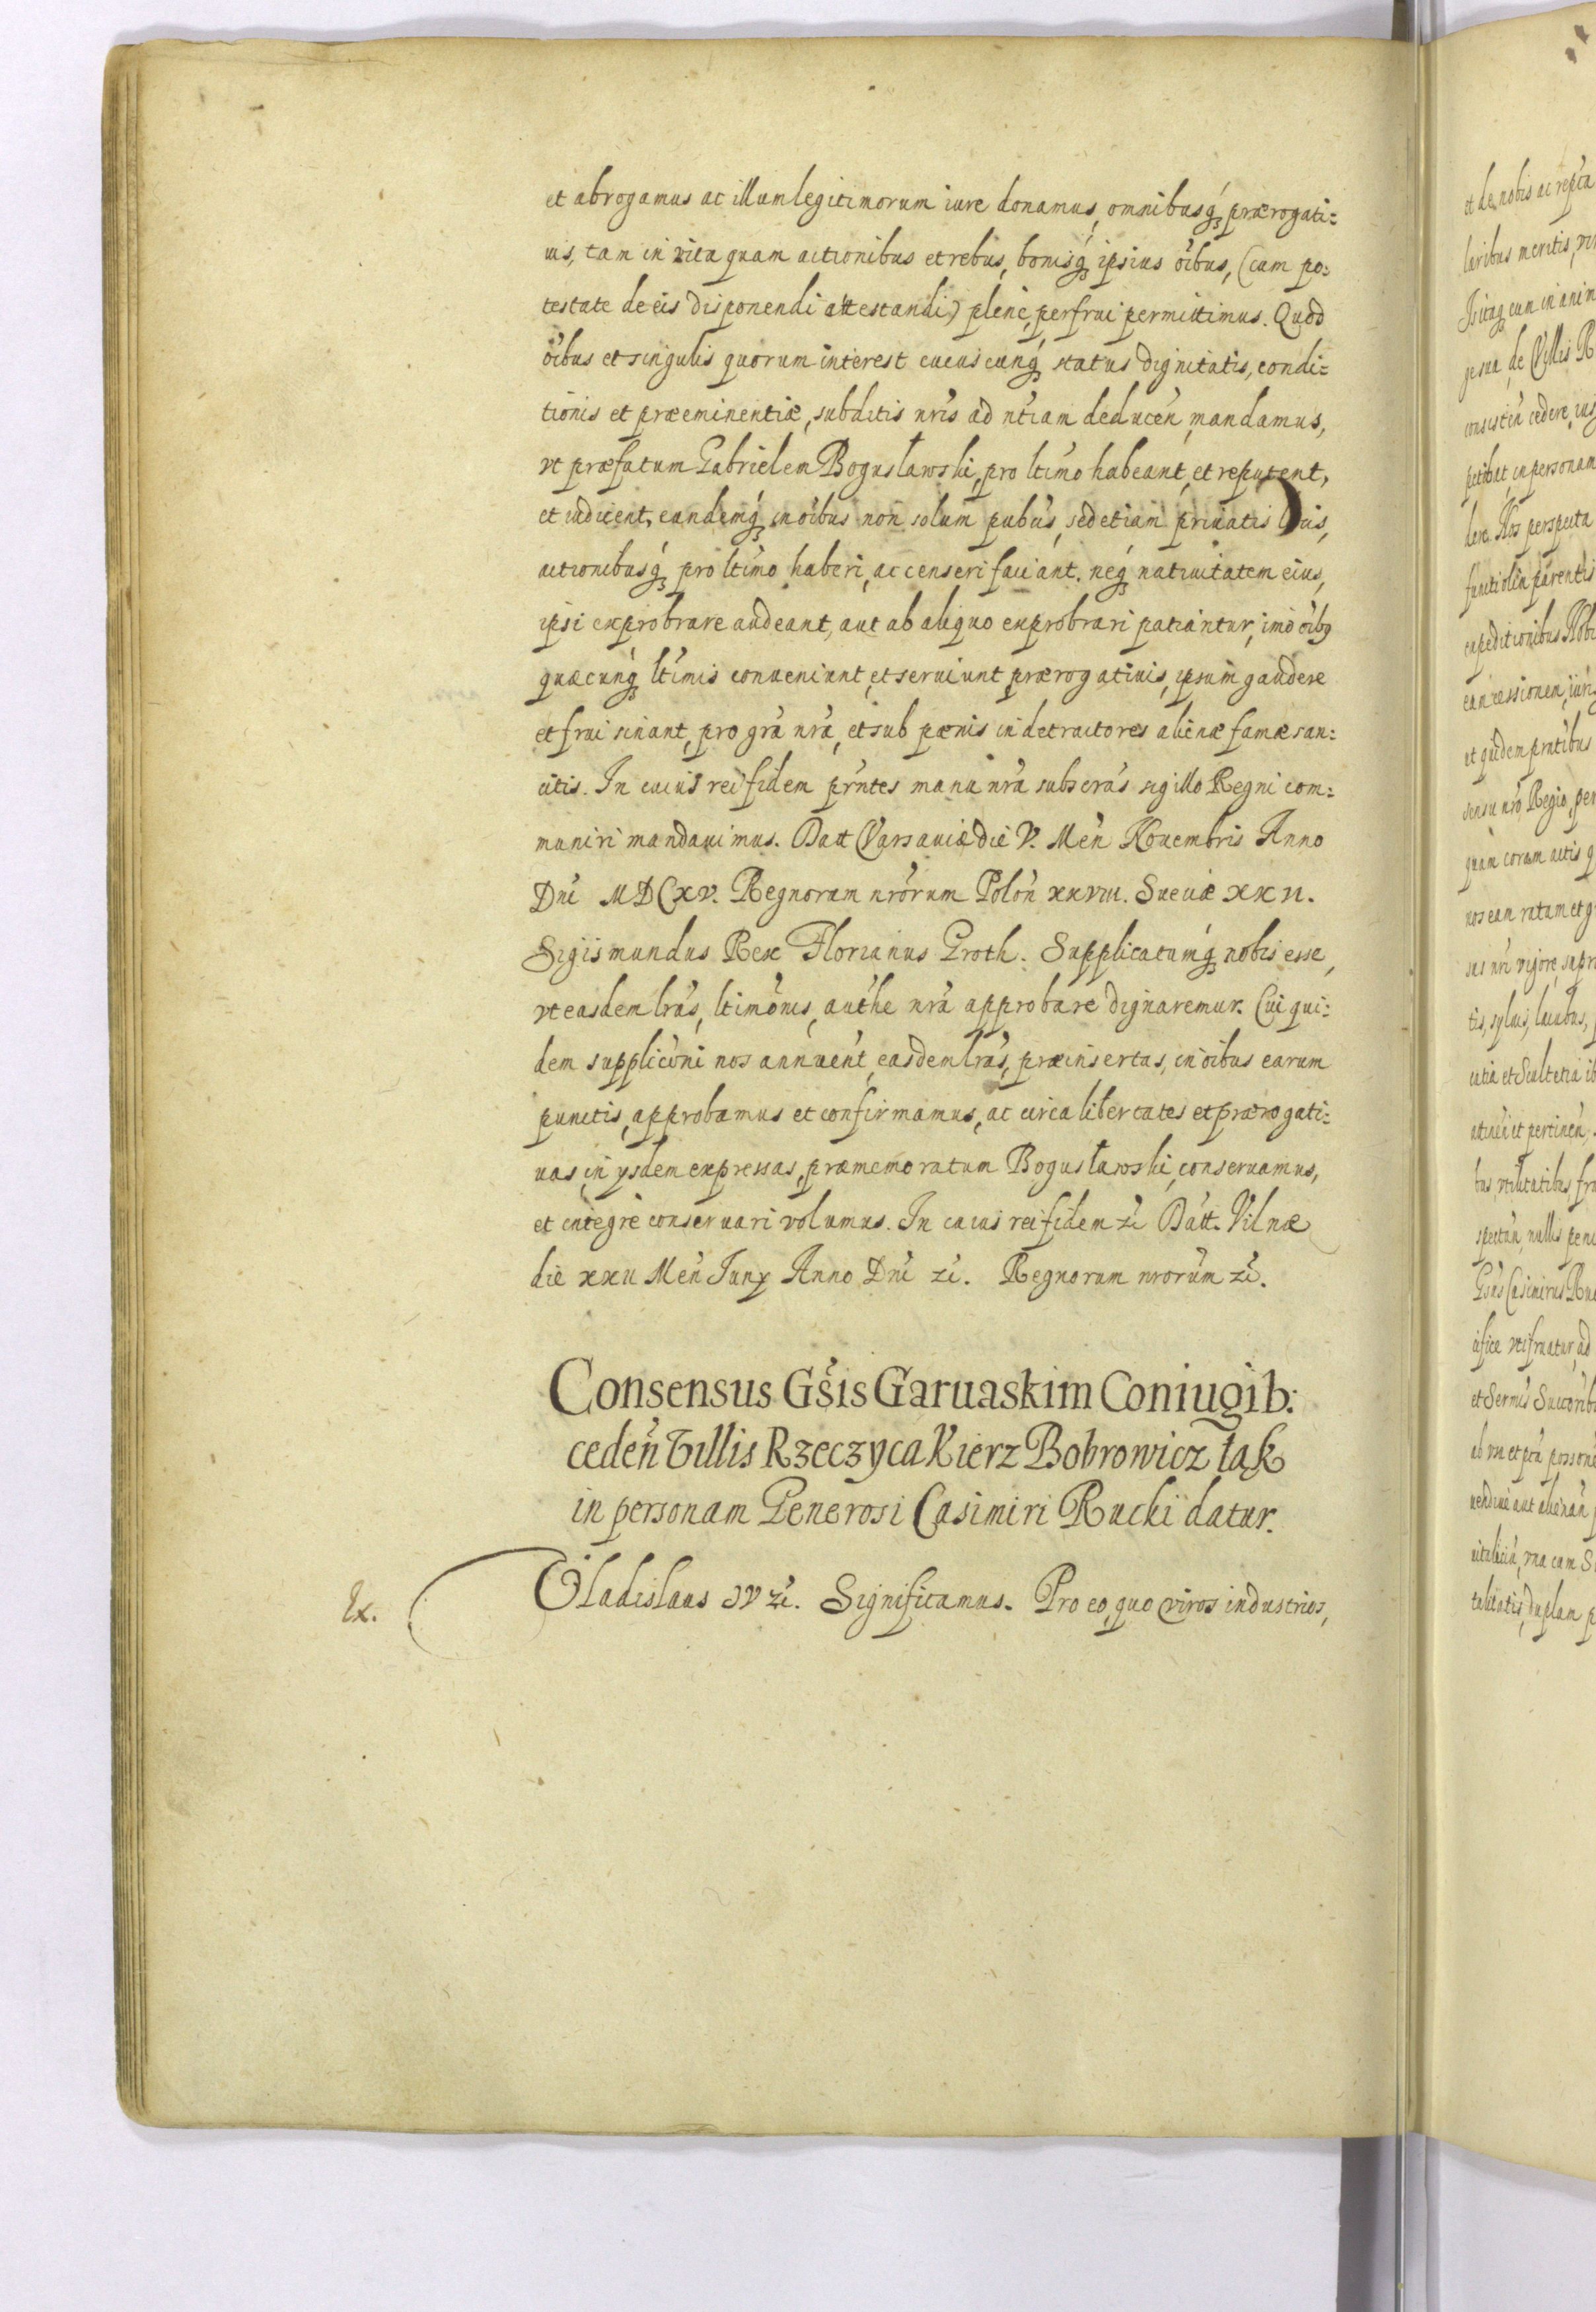 et abrogamus ac illum legitimorum iure donamus, omnibusq́ꝫ prærogati:
uis, tam in vita quam actionibus et rebus, bonisq́ꝫ ipsius oĩbus, (cum po:
testate de eis disponendi attestandi) plenè perfrui permittimus. Quod
oĩbus et singulis quorum interest cuiuscunq́ꝫ status dignitatis, condi:
tionis et præeminentiæ, subditis nr̃is ad nt̃iam deducen̾, mandamus,
vt præfatum Gabrielem Bogusławski, pro lt̃imo habeant, et reputent,
et iudicent, eundemq́ꝫ in oĩbus non solum pub̃us, sed etiam priuatis
actionibusq́ꝫ pro lt̃imo haberi, ac censeri faciant. neq́ꝫ natiuitatem eius,
ipsi exprobrare audeant, aut ab aliquo exprobrari patiantur, imò oĩbꝯ
quæcunq́ꝫ lt̃imis conueniunt, et seruiunt prærogatiuis, ipsum gaudere
et frui sinant, pro gr̃a nr̃a, et sub pœnis in detractores alienæ famæ san:
citis. In cuius rei fidem pr̃ntes manu nr̃a subscr̃as sigillo Regni com:
muniri mandauimus. Datt Varsauiæ die V. Men̾ Nouembris Anno
Dnĩ MDCXV. Regnorum nr̃orum Polon̾ XXVIII. Sueciæ XXII.
Sigismundus Rex Florianus Groth. Supplicatumq́ꝫ nobis esse,
vt easdem lr̃as, ltimõnis, auth̃e nr̃a approbare dignaremur. Cui qui:
dem supplicõni nos annuent̾, easdem lr̃as, præinsertas, in oĩbus earum
punctis, approbamus et confirmamus, ac circa libertates et prærogati:
uas, in ijsdem expressas, præmemoratum Bogusławski, conseruamus,
et integrè conseruari volumus. In cuius rei fidem zc̃ Datt. Vilnæ
die XXII Men̾ Junij Anno Dnĩ zc̃. Regnorum nrorũm zc̃.
Consensus Gs̃is Garuaskim Coniugib:
ceden̾ Villis Rzeczyca Kierz Bobrowicz łąk
in personam Generosi Casimiri Rucki datur.
Ex. Vladislaus IV zc̃. Significamus. Pro eo, quo viros industrios,
et de nobis ac repca
laribus meritis, vir
ge sua, de Villis R
consisten̾ cedere, ius
petibat, in personam
dere. Nos perspecta
functi olim parentis
expeditionibus
concessionem, iuris
et quidem pratibus
sensu nr̃o Regio, per
quam coram actis q
nos eam ratam et g
sus nr̃i vigore, supr
tis, syluis, lacubus,
et Scultetia ib
et pertinen̾,
bus, vtilitatibus, fru
nullis peni
Gs̃us Casimirus Ruc
vti fruatur, ad
et Serm̃is Succorib
aut alienan̾
vna cum S
talitatis, duplam p